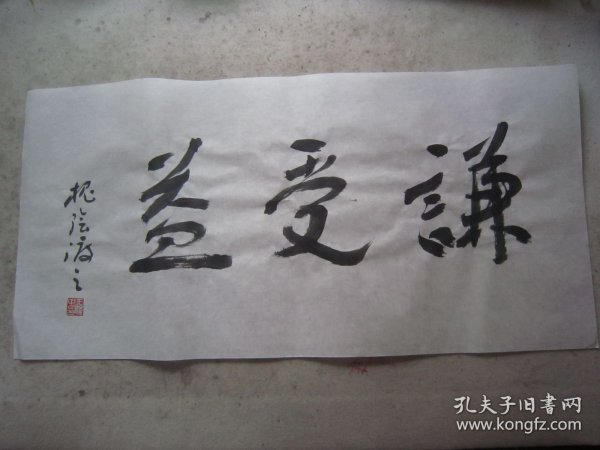 謙受益
槐陰波之
孔夫子旧書网
www.kongfz.com